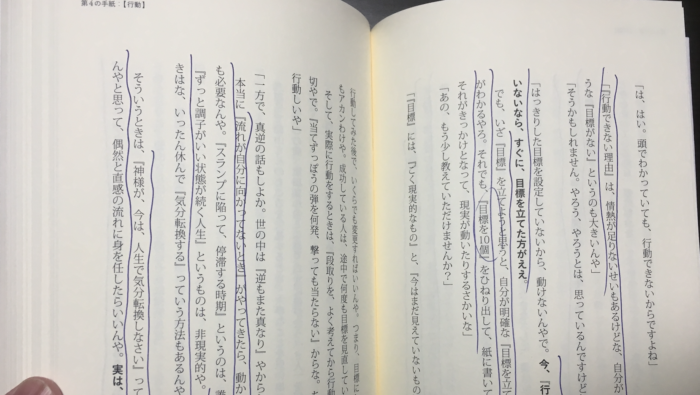 「は、はい。頭でわかっていても、行動できないからですよね」
「『行動できない理由』は、情熱が足りないせいもあるけどな、自分が
うな『目標がない』というのも大きいんや」
「そうかもしれません。やろう、やろうとは、思っているんですけ
「はっきりした目標を設定していないから、動けないんやで。今、『行
いないなら、すぐに、目標を立てた方がええ。
でも、いざ『目標』を立てようと思うと、自分が明確な『目標を立て
がわかるやろ。それでも、『目標を10個』をひねり出して、紙に書いて
それがきっかけとなって、現実が動いたりするさかいな」
「あの、もう少し教えていただけませんか？」
「『目標』には、『ごく現実的なもの』と、『今はまだ見えていないもの
第4の手紙 【行動】
行動してみた後で、いくらでも変更すればいいんや。つまり、目標に
もアカンわけや。成功している人は、途中で何度も目標を見直してい
そして、実際に行動をするときは、『段取りを、よく考えてから行動
切やで。『当てずっぽうの弾を何発、撃っても当たらない』からな。
行動しいや」
「一方で、真逆の話もしよか。世の中は『逆もまた真なり』やから
本当に『流れが自分に向かってないとき』がやってきたら、動か
も必要なんや。『スランプに陥って、停滞する時期』というのは、誰
『ずっと調子がいい状態が続く人生』というものは、非現実的や。
きはな、いったん休んで『気分転換する』っていう方法もあるんや
そういうときは、『神様が、今は、人生で気分転換しなさい』って
んやと思って、偶然と直感の流れに身を任したらいいんや。実は、